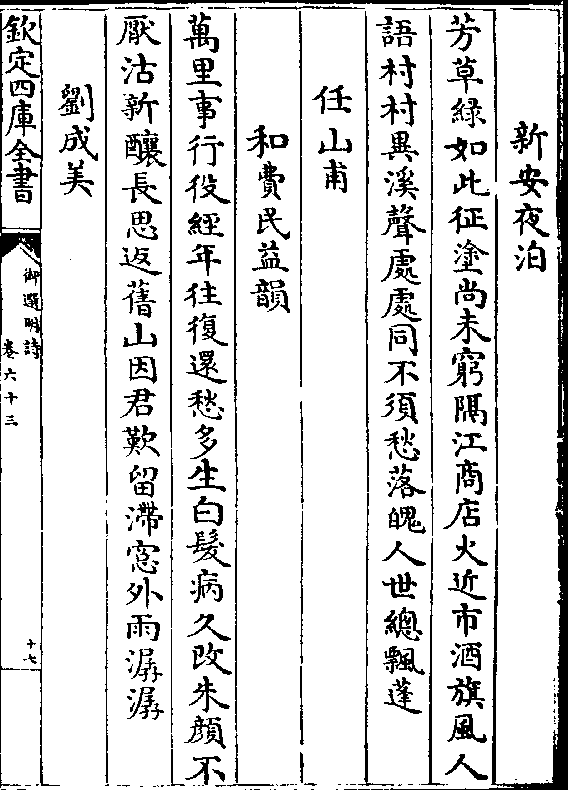 新安夜泊
芳草綠如此征塗尚未窮隔江商店火近市酒旗風人
語村村異溪聲處處同不須愁落魄人世總飄蓬
任山甫
和費民益韻
萬里事行役經年往復還愁多生白髮病久改朱顔不
厭沽新釀長思返舊山因君歎留滯窓外雨潺潺
劉成美
欽定四庫全書
御選明詩
卷六十三
十七